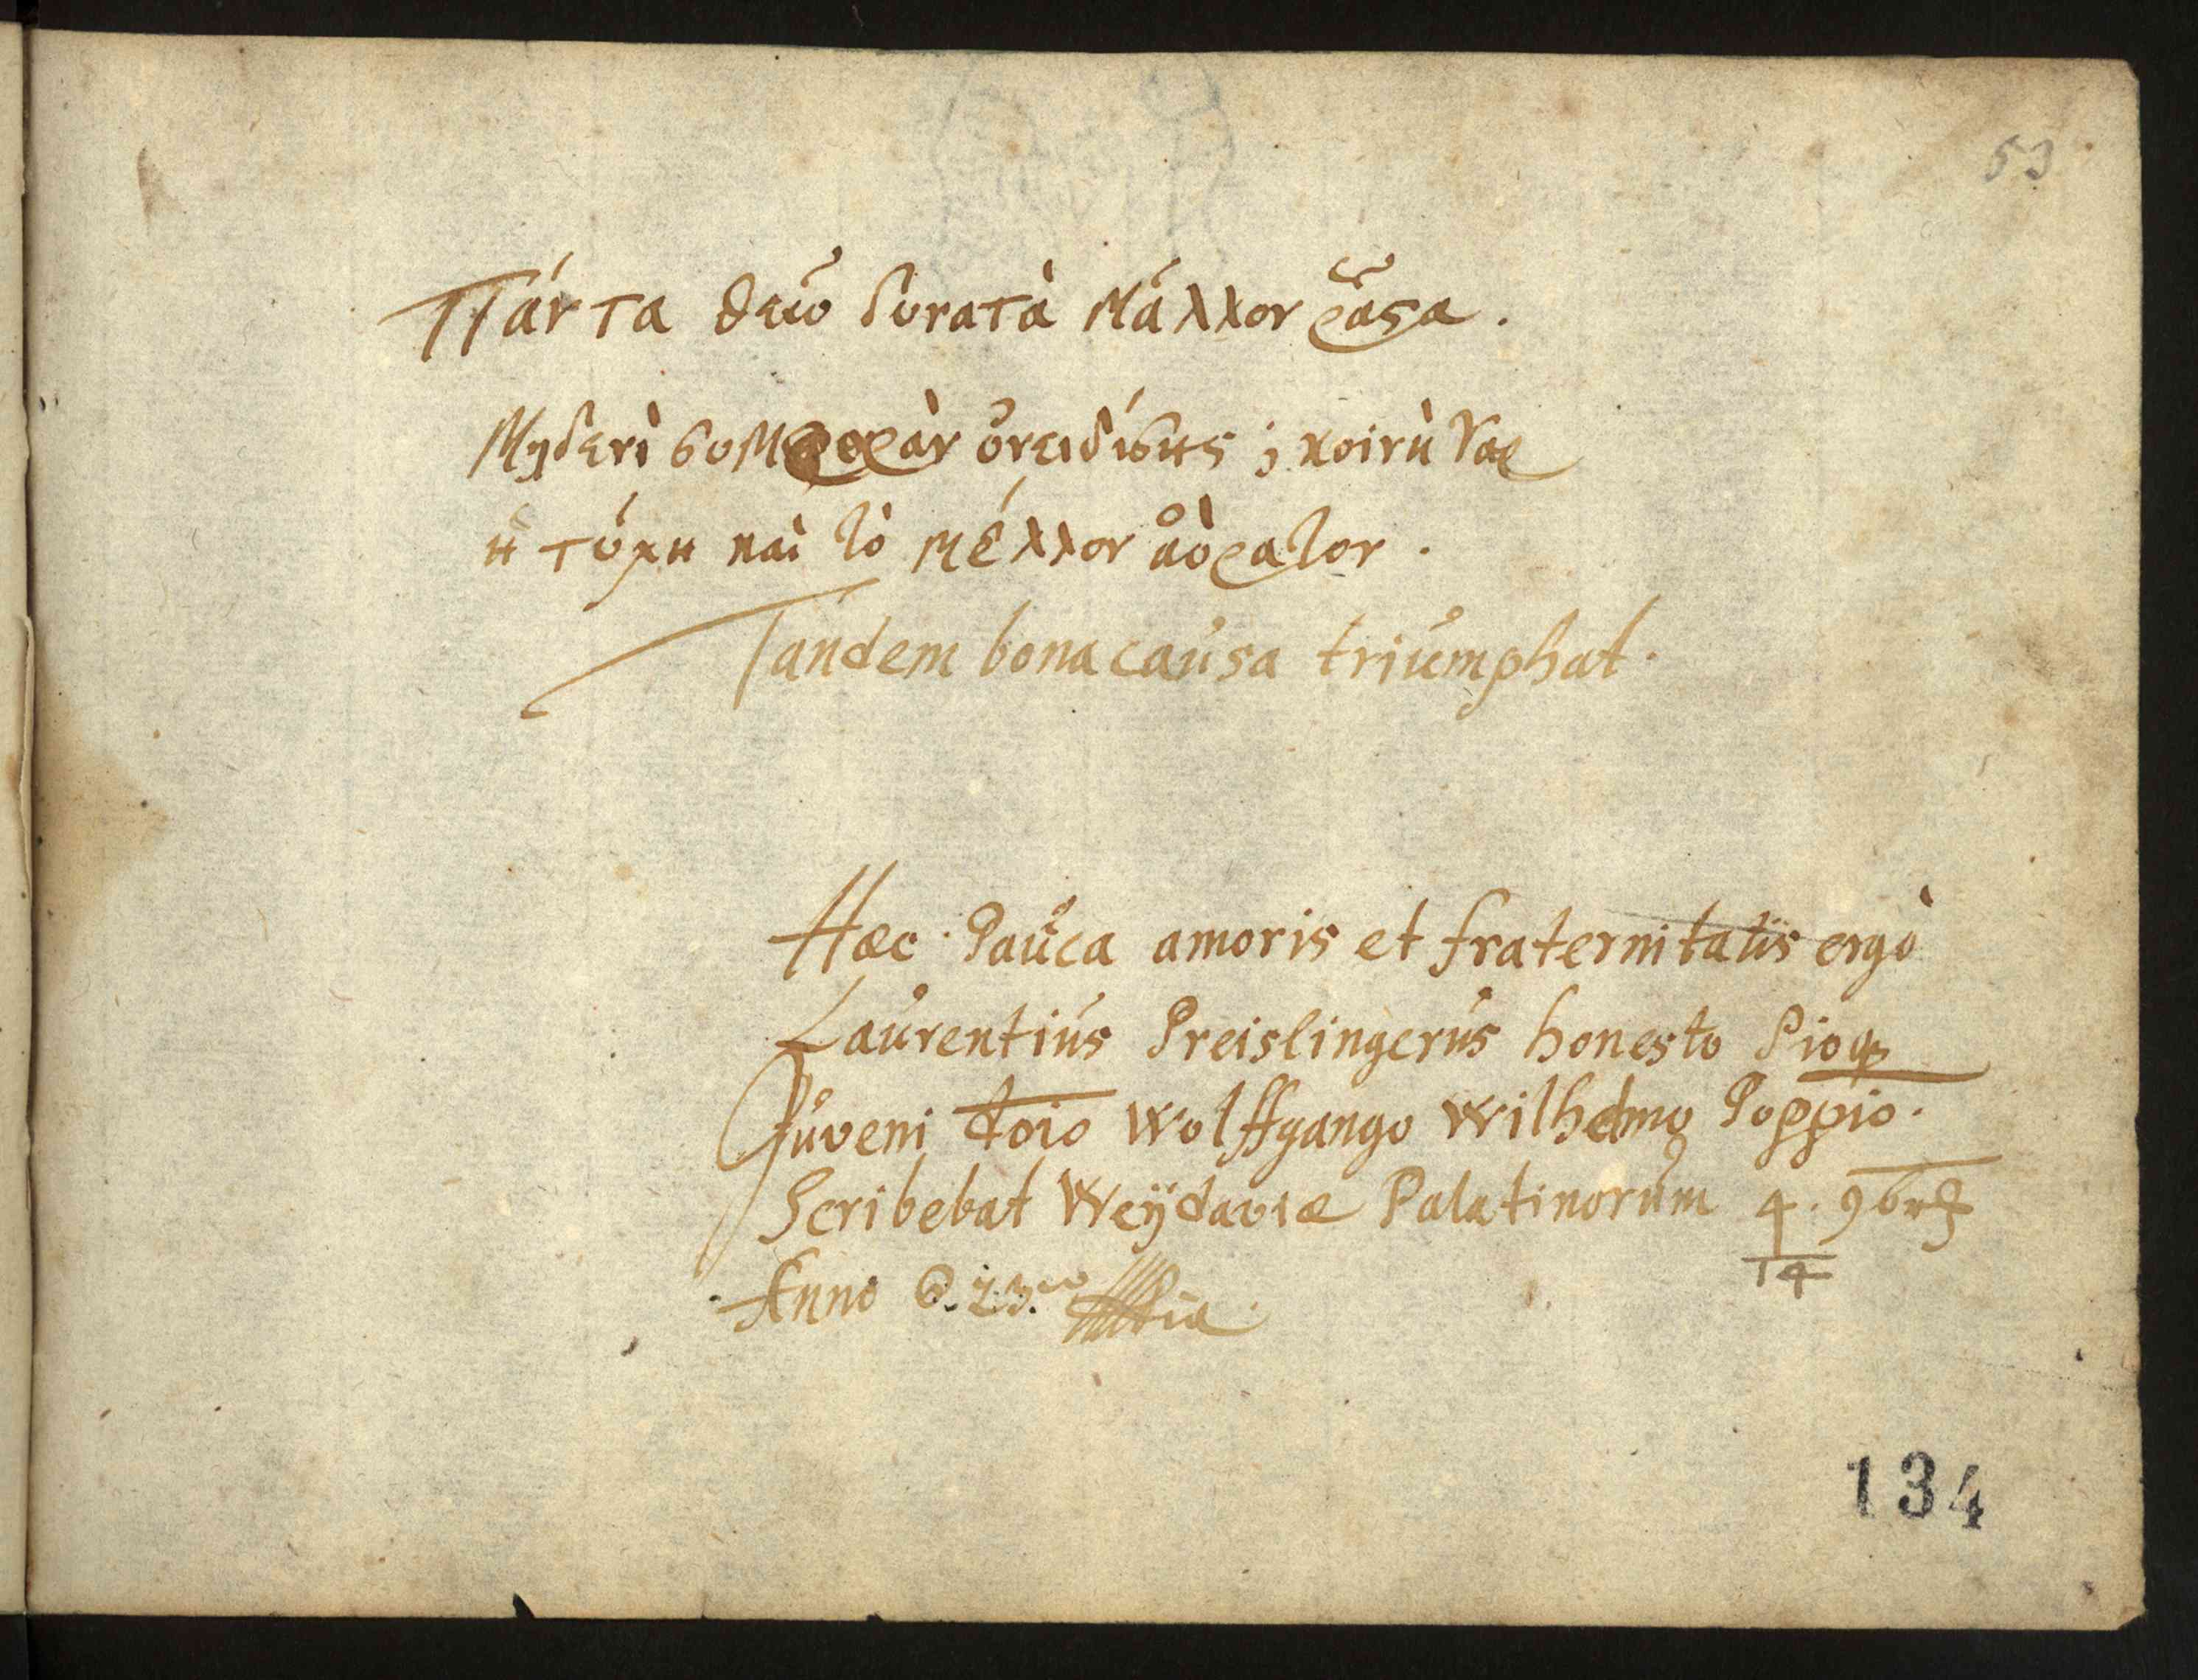 53
Πάντα θεῷ δυνατὰ μάλλον ῥᾷστα.
Μηδενὶ συμφορὰν ὀνειδίσῃς ; κοινὴ γὰρ
ἡ τύχη καὶ τὸ μέλλον ἀόρατον.
Tandem bona causa triumphat.
Hæc Pauca amoris et fraternitatis ergò
Laurentius Preislingerus honesto Pioq3
Juveni doio Wolffgango Wilhelmo Poppio.
Scribebat Weÿdaviæ Palatinorum 4. 9br
14
Anno 6.23.
134